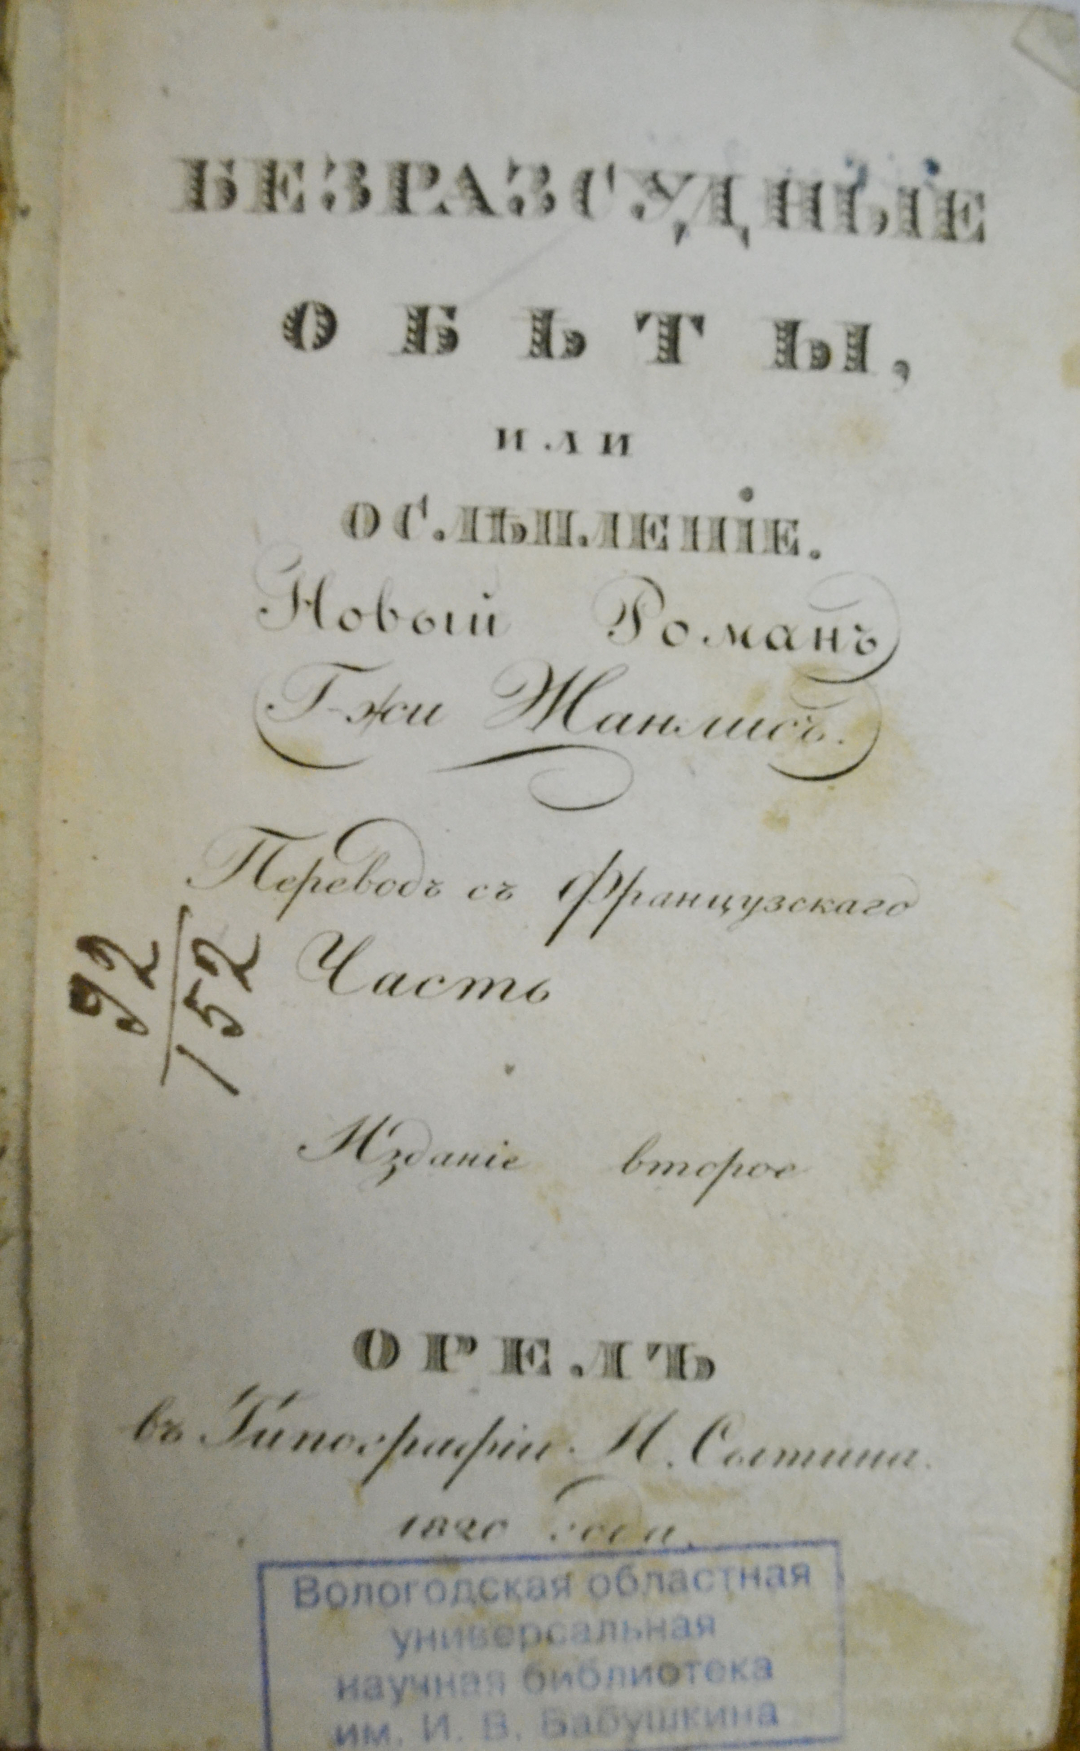 БЕЗРАЗСУДНЫЕ
ОБѢТЫ,
ИЛИ
ОСЛѢПЛЕНІЕ.
Новый Романъ
Г-жи Жанлисъ.
Переводъ съ Французскаго
92
152
Часть
Изданіе второе
ОРЕЛЪ
въ Типографіи И. Сытина.
1820 года.
Вологодская областная
универсальная
научная библиотека
им. И. В. Бабушкина